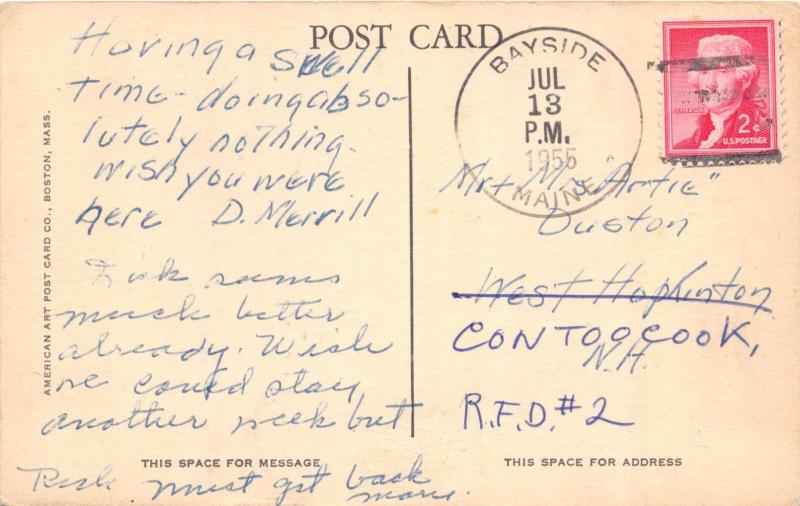 POST CARD
Having a swell
time - doing abso-
lutely nothing.
Wish you were
here D. Merrill
seems
much better
already. Wish
we could stay
another week but
must get back
THIS SPACE FOR MESSAGE
AMERICAN ART POST CARD CO., BOSTON, MASS.
BAYSIDE
JUL
13
P.M.
1955
MAINE
2¢
U.S. POSTAGE
Mr + Mrs "Artie"
Duston
West Hopkinton
CONTOOCOOK,
N.H.
R.F.D. #2
THIS SPACE FOR ADDRESS